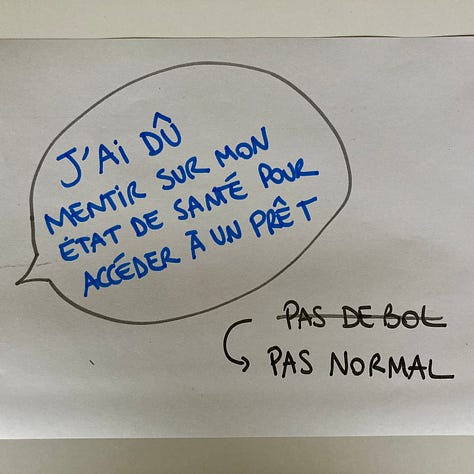 J'AI DÛ
MENTIR SUR MON
ÉTAT DE SANTÉ POUR
ACCÉDER À UN PRÊT
PAS DE BOL
PAS NORMAL